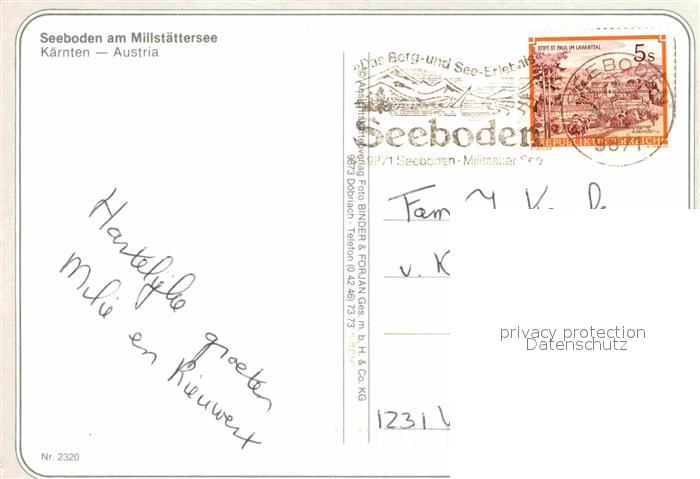 Seeboden am Millstättersee
Kärnten — Austria
»Das Berg- und See-Erlebnis
Seeboden
9871 Seeboden · Millstätter See
STIFT ST. PAUL IM LAVANTTAL
5 S
REPUBLIK ÖSTERREICH
SEEBODEN
9871
© Ansichtskartenverlag Foto BINDER & FORJAN Ges. m. b. H. & Co. KG
9873 Döbriach · Telefon (0 42 46) 73 73
Hartelijke groeten
Milie en Rieuwert
Fam
v. K
1231 V
privacy protection
Datenschutz
Nr. 2320